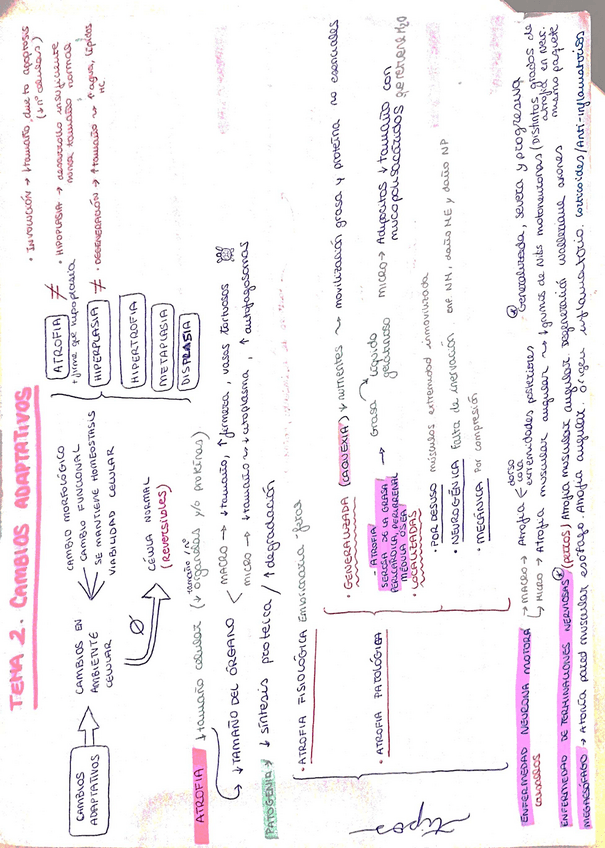 TEMA 2. CAMBIOS ADAPTATIVOS
CAMBIOS ADAPTATIVOS
CAMBIOS EN AMBIENTE CELULAR
CAMBIO MORFOLÓGICO
CAMBIO FUNCIONAL
SE MANTIENE HOMEOSTASIS
VIABILIDAD CELULAR
CÉLULA NORMAL
(reversibles)
ATROFIA
+ firme que hipoplasia
HIPERPLASIA
HIPERTROFIA
METAPLASIA
DISPLASIA
≠
≠
• INVOLUCIÓN → ↓tamaño, due to apoptosis
(↓nº células)
• HIPOPLASIA → desarrollo insuficiente
nunca tamaño normal
• DEGENERACIÓN → ↑tamaño ~ ↑agua, lípidos
HC.
ATROFIA ↓tamaño celular (↓ tamaño / nº organelas y/o proteínas)
↓TAMAÑO DEL ÓRGANO
MACRO → ↓tamaño, ↑firmeza, vasos tortuosos
micro → ↓tamaño ~ ↓citoplasma, ↑ autofagosomas
PATOGENIA → ↓ síntesis proteica / ↑ degradación
tipos
• ATROFIA FISIOLÓGICA Embrionaria - fetal
• ATROFIA PATOLÓGICA
• GENERALIZADA (CAQUEXIA) ↓ nutrientes ~ movilización grasa y proteína no esenciales
- ATROFIA SEROSA DE LA GRASA
PERICÁRDICA, PERIRRENAL
MÉDULA ÓSEA
→ Grasa
líquido gelatinoso
micro → Adipocitos ↓ tamaño con
mucopolisacáridos
• LOCALIZADAS
• POR DESUSO músculos extremidad inmovilizada
• NEUROGÉNICA Falta de inervación enf NM, daño ME y daño NP
• MECÁNICA Por compresión
ENFERMEDAD NEURONA MOTORA
caballos
→ MACRO → Atrofia
dorso
cola
extremidades posteriores
Generalizada, severa y progresiva
→ MICRO → Atrofia muscular angular ~ ↓grumos de Nills motoneuronas (Distintos grados de
atrofia en
mismo paquete
ENFERMEDAD DE TERMINACIONES NERVIOSAS (perros) Atrofia muscular angular degeneración walleriana axones
MEGAESÓFAGO → Atonía pared muscular esófago. Atrofia angular. Origen inflamatorio. corticoides/Anti-inflamatorios